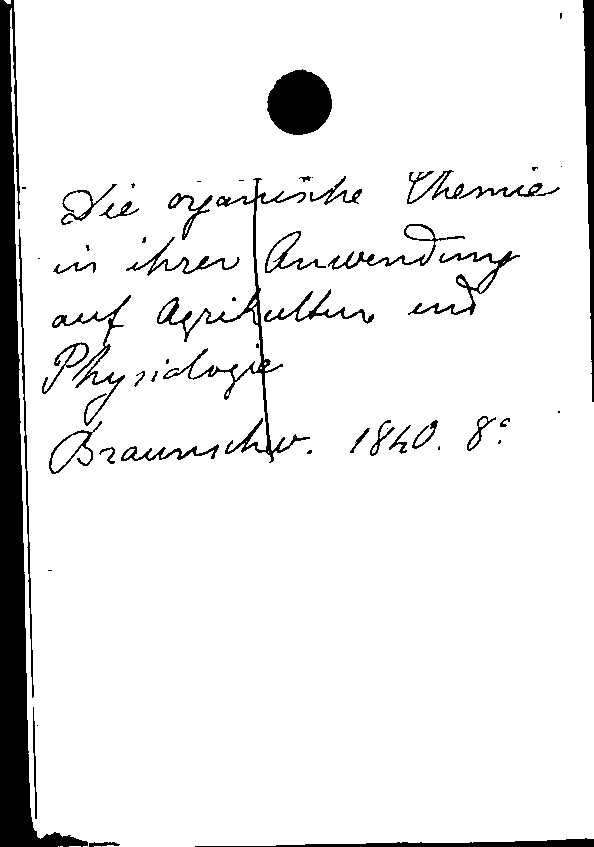 Die organische Chemie
in ihrer Anwendung
auf Agrikultur und
Physiologie
Braunschw. 1840. 8°